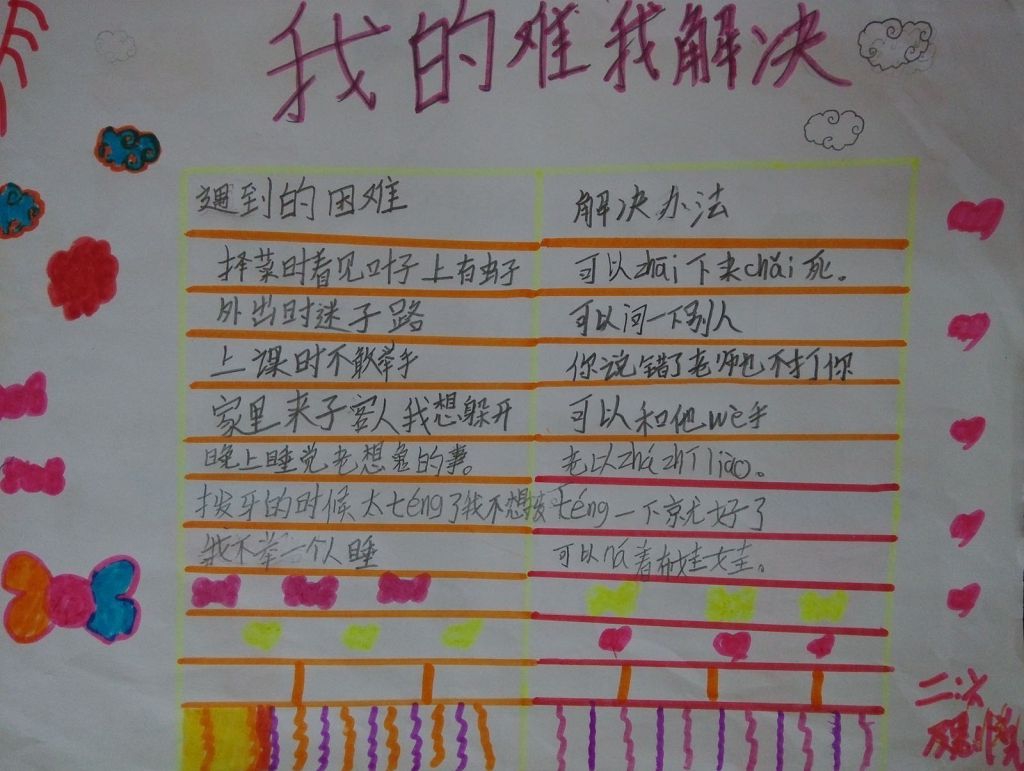 我的难我解决
遇到的困难 解决办法
择菜时看见叶子上有虫子 可以zhāi下来chǎi死。
外出时迷子路 可以问一下别人
上课时不敢举手 你说错了老师也不打你
家里来子客人我想躲开 可以和他wè手
晚上睡觉老想鬼的事。 老以zhá zhī liào。
拨牙的时候太téng了我不想拔 téng一下京尤好了
我不举一个人睡 可以 着布娃娃。
二